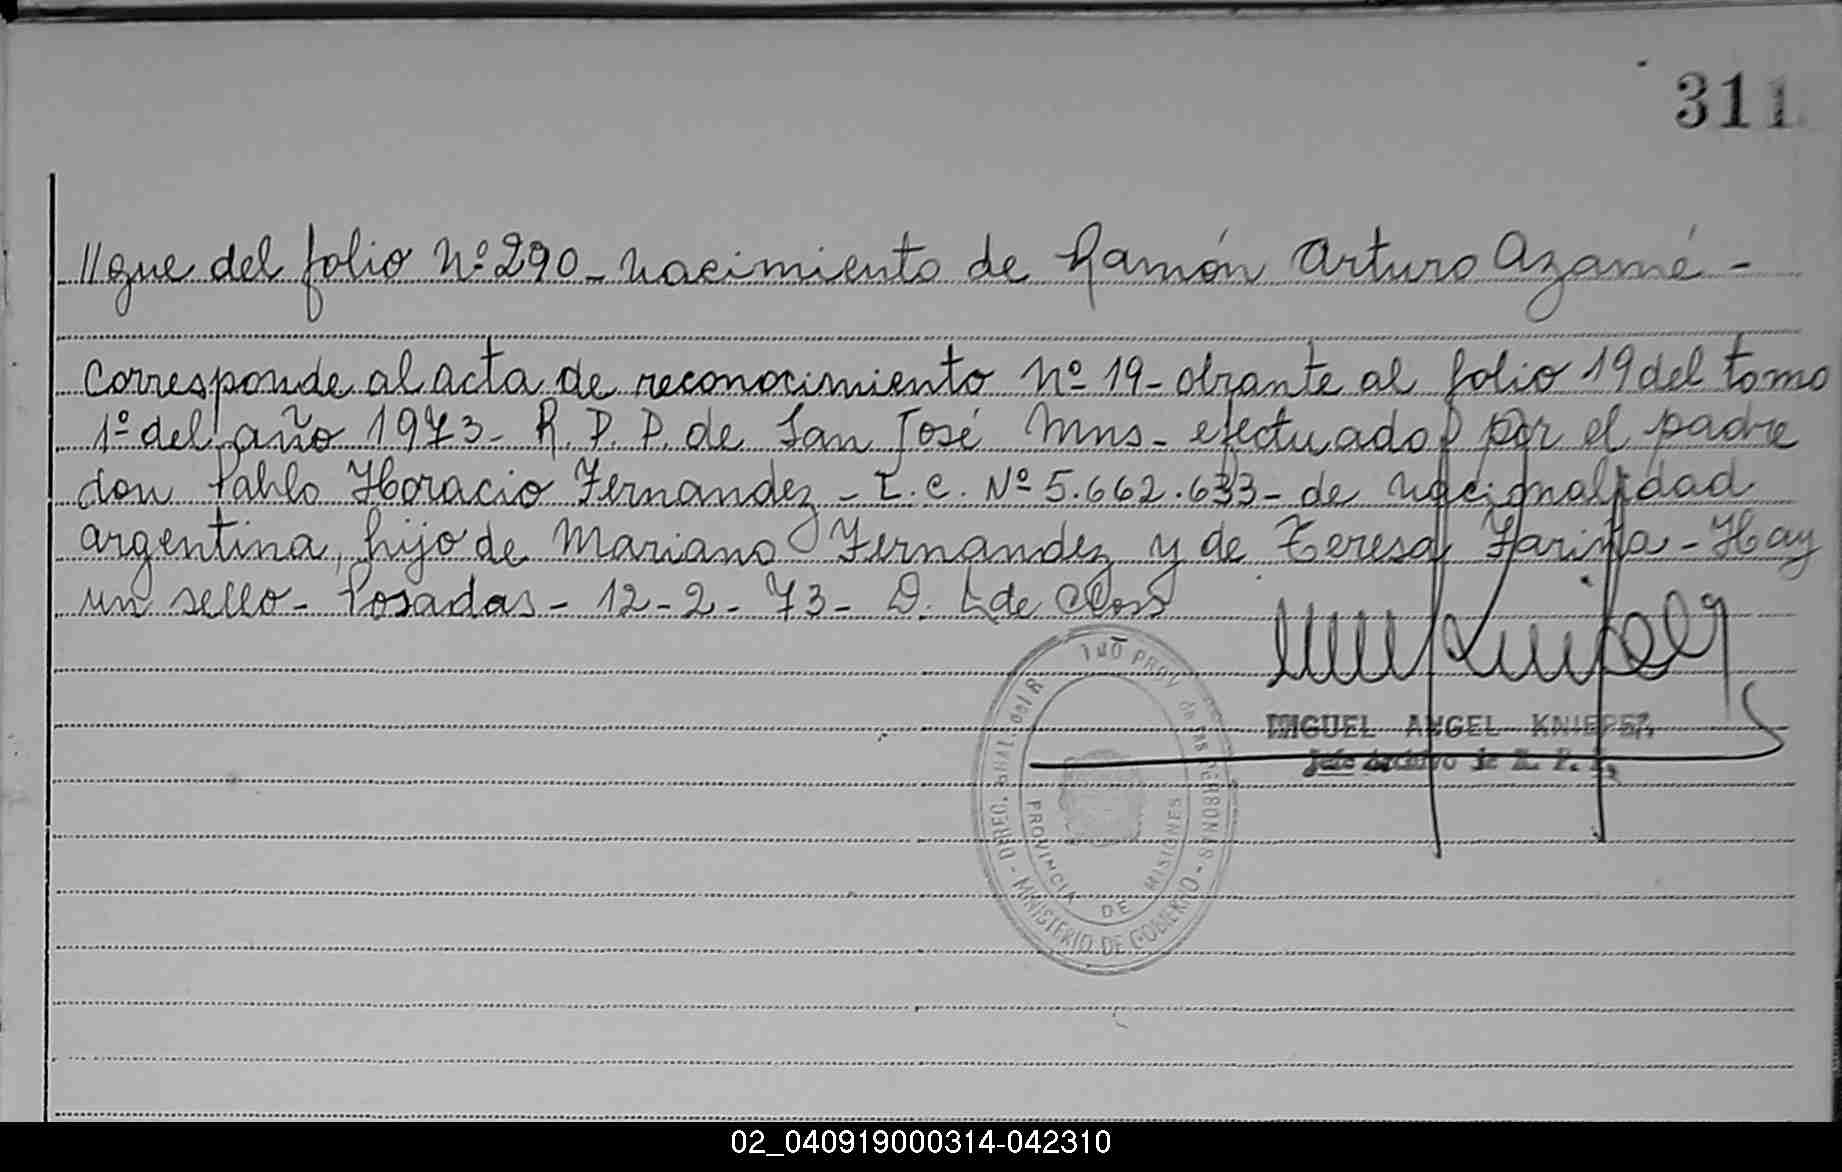 311
//gue del folio Nº 290 - nacimiento de Ramón Arturo Azamé -
Corresponde al acta de reconocimiento Nº 19 - obrante al folio 19 del tomo
1º del año 1973 - R. P. P. de San José Mns - efectuado por el padre
don Pablo Horacio Fernandez - L. E. Nº 5.662.633 - de nacionalidad
argentina, hijo de Mariano Fernandez y de Teresa Fariña - Hay
un sello - Posadas - 12 - 2 - 73 - D. L de Closs
MIGUEL ANGEL
Jefe Archivo de R. P. P.
DIREC. GRAL. del R PROV. de las PERSONAS - MINISTERIO DE GOBIERNO -
PROVINCIA DE MISIONES
02_040919000314-042310